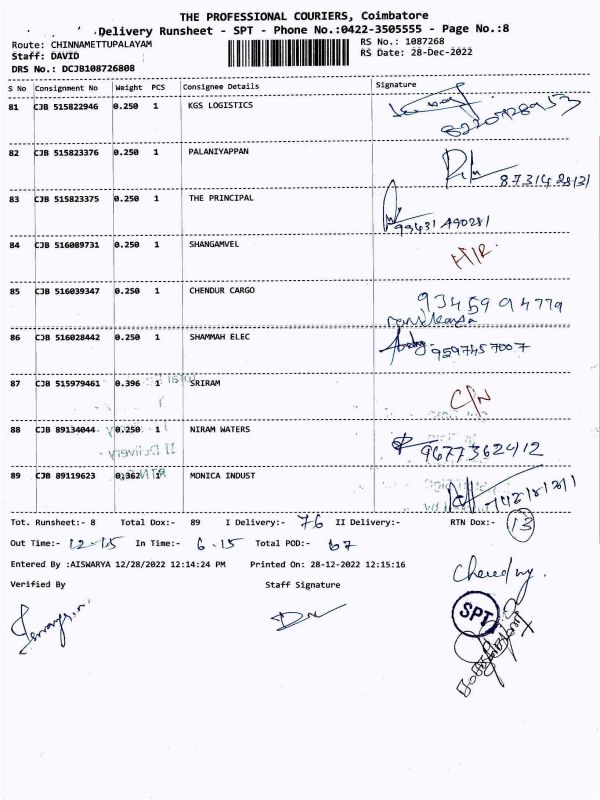 THE PROFESSIONAL COURIERS, Coimbatore
Delivery Runsheet - SPT - Phone No.:0422-3505555 - Page No.:8
Route: CHINNAMETTUPALAYAM RS No.: 1087268
Staff: DAVID RS Date: 28-Dec-2022
DRS No.: DCJB108726808
S No Consignment No Weight PCS Consignee Details Signature
81 CJB 515822946 0.250 1 KGS LOGISTICS
82 CJB 515823376 0.250 1 PALANIYAPPAN
83 CJB 515823375 0.250 1 THE PRINCIPAL
84 CJB 516089731 0.250 1 SHANGAMVEL
85 CJB 516039347 0.250 1 CHENDUR CARGO 9345994779
86 CJB 516028442 0.250 1 SHAMMAH ELEC 9597457007
87 CJB 515979461 0.396 1 SRIRAM C/N
88 CJB 89134044 0.250 1 NIRAM WATERS 9677362412
89 CJB 89119623 0.362 1 MONICA INDUST
Tot. Runsheet:- 8 Total Dox:- 89 I Delivery:- 76 II Delivery:- RTN Dox:- 13
Out Time:- 12.15 In Time:- 6.15 Total POD:- 67
Entered By :AISWARYA 12/28/2022 12:14:24 PM Printed On: 28-12-2022 12:15:16
Verified By Staff Signature
SPT